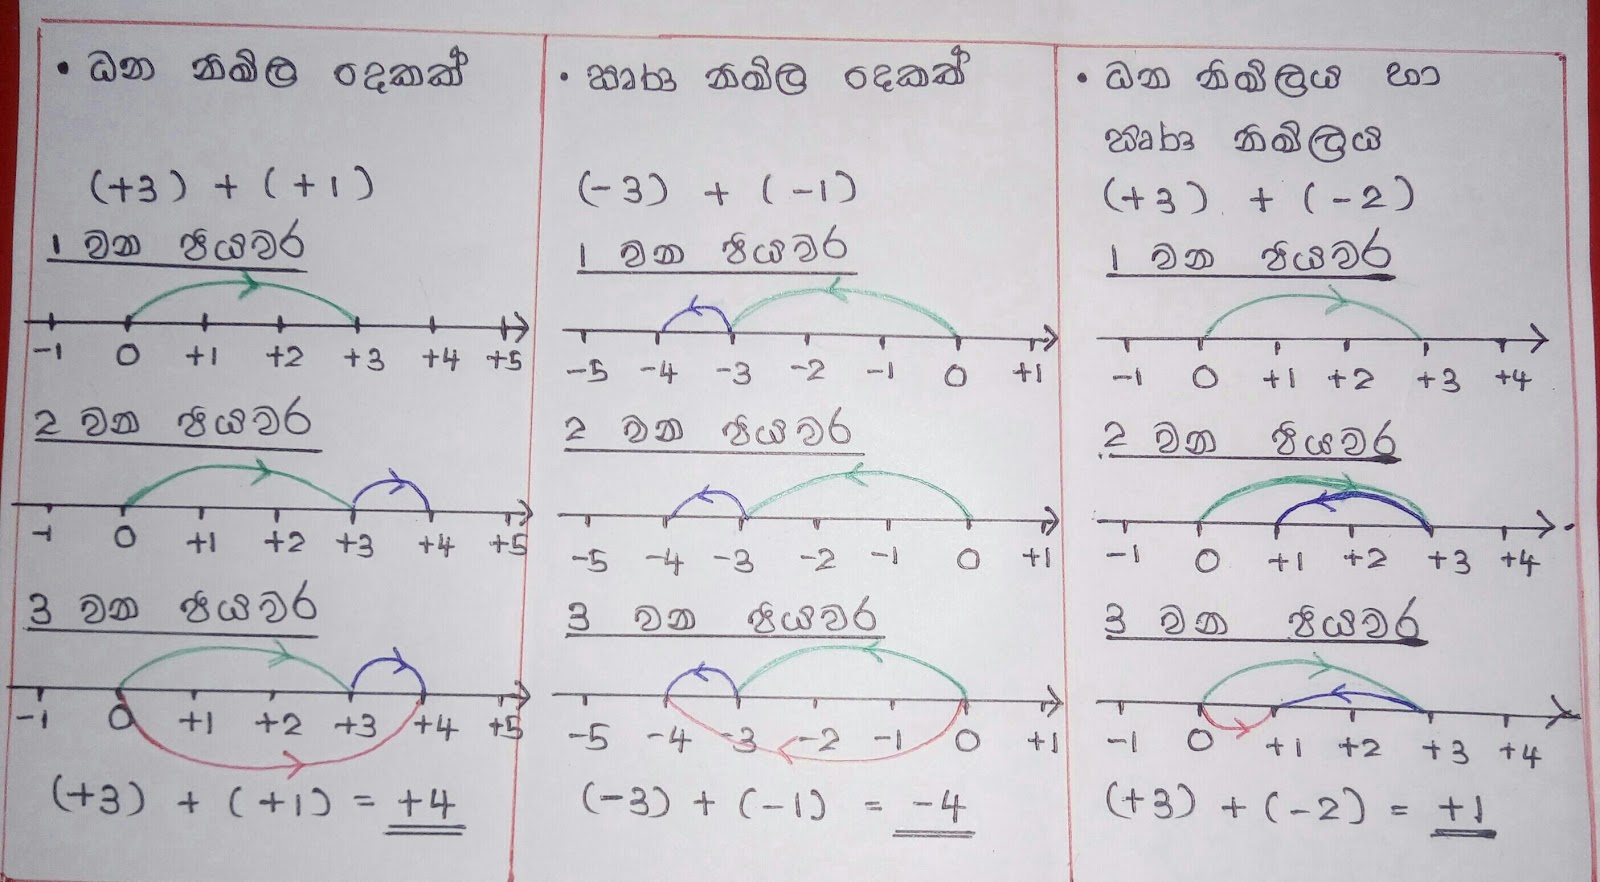 • ධන නිඛිල දෙකක්
(+3) + (+1)
1 වන පියවර
-1 0 +1 +2 +3 +4 +5
2 වන පියවර
-1 0 +1 +2 +3 +4 +5
3 වන පියවර
-1 0 +1 +2 +3 +4 +5
(+3) + (+1) = +4
• සෘණ නිඛිල දෙකක්
(-3) + (-1)
1 වන පියවර
-5 -4 -3 -2 -1 0 +1
2 වන පියවර
-5 -4 -3 -2 -1 0 +1
3 වන පියවර
-5 -4 -3 -2 -1 0 +1
(-3) + (-1) = -4
• ධන නිඛිලය හා
සෘණ නිඛිලය
(+3) + (-2)
1 වන පියවර
-1 0 +1 +2 +3 +4
2 වන පියවර
-1 0 +1 +2 +3 +4
3 වන පියවර
-1 0 +1 +2 +3 +4
(+3) + (-2) = +1